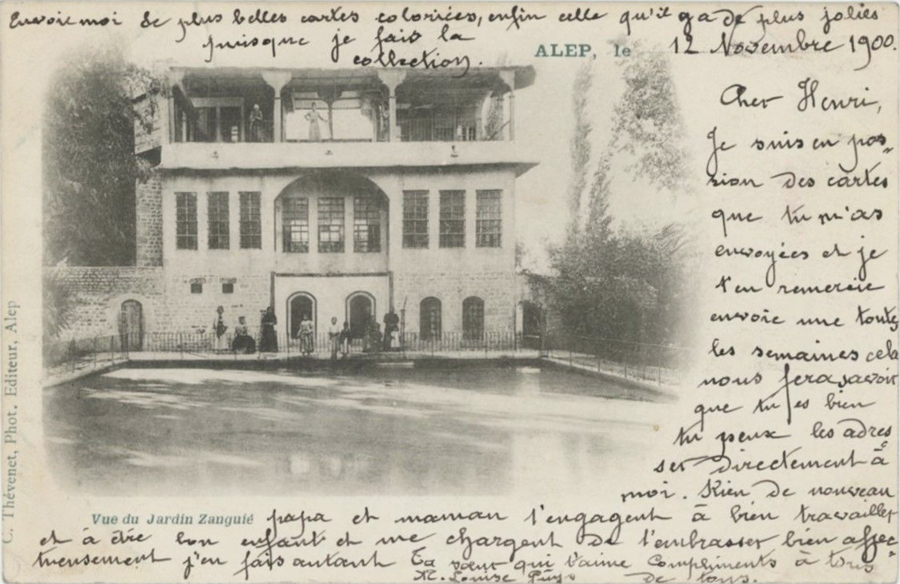 Envoie moi de plus belles cartes coloriées, enfin celle qu'il y a de plus jolies
puisque je fais la
collection.
ALEP, le 12 Novembre 1900.
Cher Henri,
Je suis en pos-
sion des cartes
que tu m'as
envoyées et je
t'en remercie
envoie une toutes
les semaines cela
nous fera savoir
que tu es bien
tu peux les adres
ser directement à
moi. Rien de nouveau
papa et maman t'engagent à bien travailler
et à être bon enfant et me chargent de t'embrasser bien affec-
tueusement j'en fais autant Ta sœur qui t'aime Compliments à tous
de tous.
Louise
Vue du Jardin Zanguié
C. Thévenet, Phot. Editeur, Alep